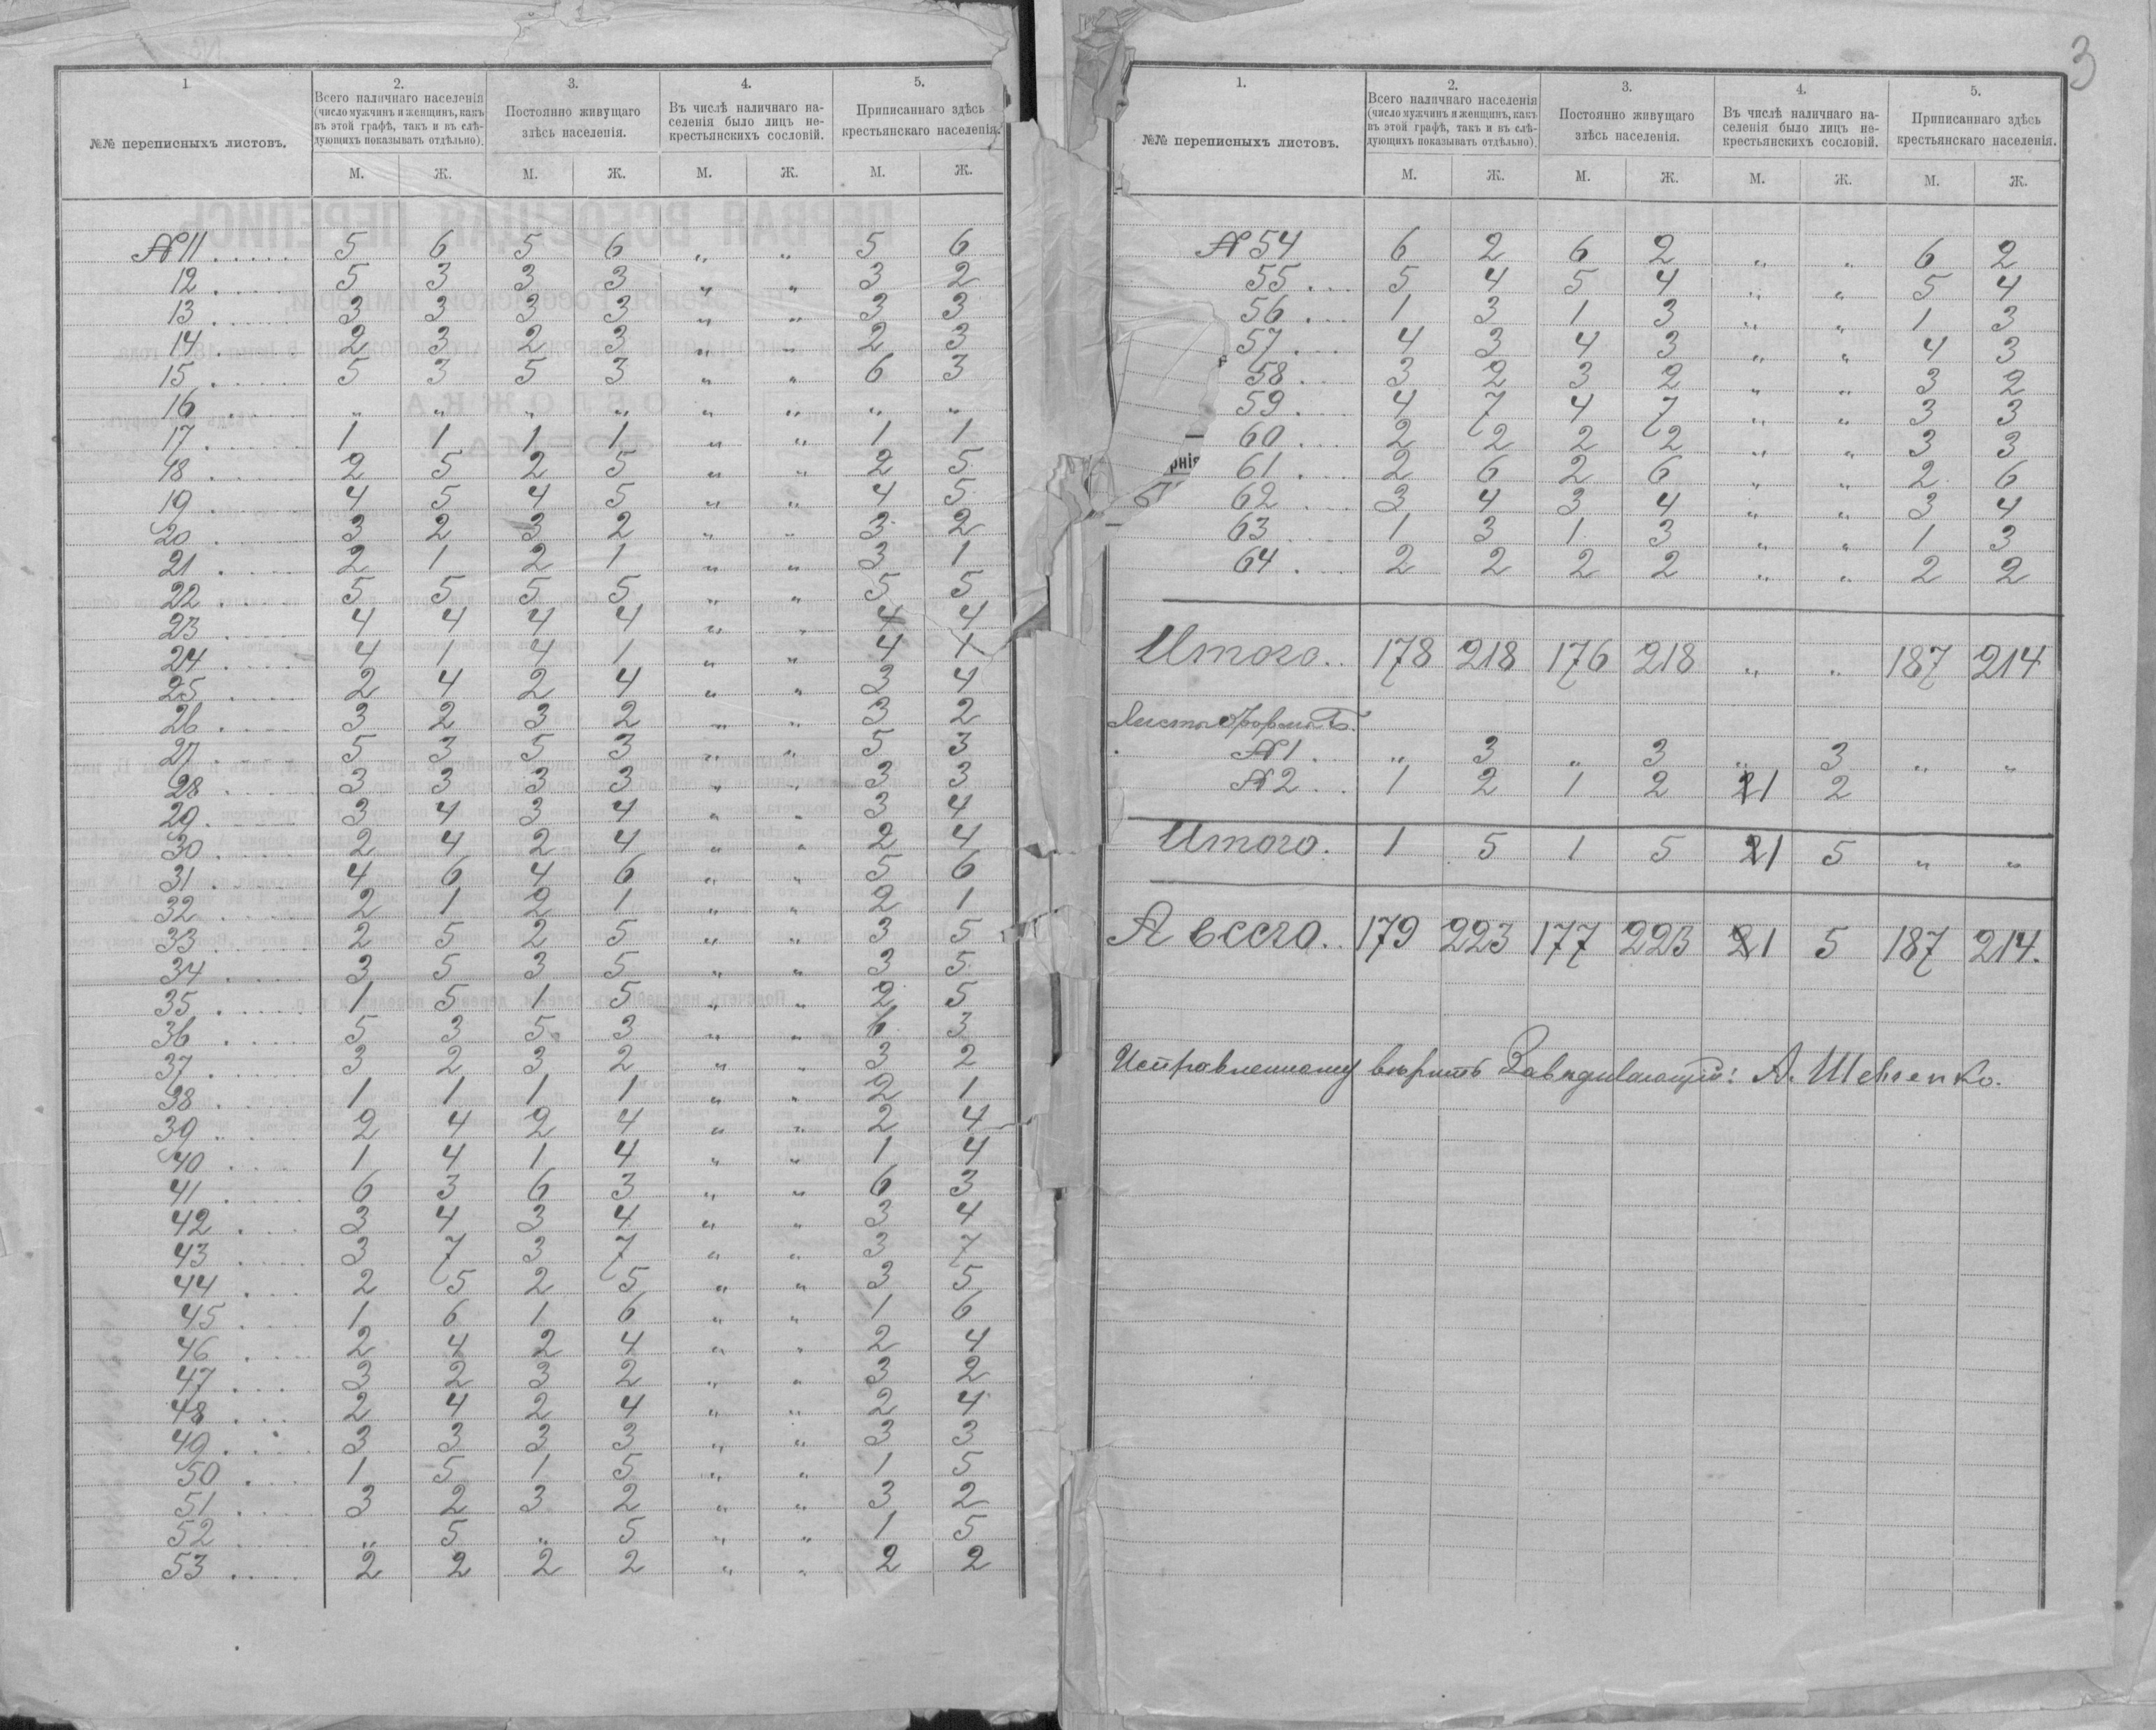 3
1 2. 3. 4. 5.
№№ переписныхъ листовъ. Всего наличнаго населенія (число мужчинъ и женщинъ, какъ въ этой графѣ, такъ и въ слѣдующихъ показывать отдѣльно). Постоянно живущаго здѣсь населенія. Въ числѣ наличнаго населенія было лицъ некрестьянскихъ сословій. Приписаннаго здѣсь крестьянскаго населенія.
М. Ж. М. Ж. М. Ж. М. Ж.
№ 11 5 6 5 6 „ „ 5 6
12 5 3 3 3 „ „ 3 2
13 3 3 3 3 „ „ 3 3
14 2 3 2 3 „ „ 2 3
15 5 3 5 3 „ „ 6 3
16 „ „ „ „ „ „ „ „
17 1 1 1 1 „ „ 1 1
18 2 5 2 5 „ „ 2 5
19 4 5 4 5 „ „ 4 5
20 3 2 3 2 „ „ 3 2
21 2 1 2 1 „ „ 3 1
22 5 5 5 5 „ „ 5 5
23 4 4 4 4 „ „ 4 4
24 4 1 4 1 „ „ 4 1
25 2 4 2 4 „ „ 3 4
26 3 2 3 2 „ „ 3 2
27 5 3 5 3 „ „ 5 3
28 3 3 3 3 „ „ 3 3
29 3 4 3 4 „ „ 3 4
30 2 4 2 4 „ „ 2 4
31 4 6 4 6 „ „ 5 6
32 2 1 2 1 „ „ 2 1
33 2 5 2 5 „ „ 3 5
34 3 5 3 5 „ „ 3 5
35 1 5 1 5 „ „ 2 5
36 5 3 5 3 „ „ 6 3
37 3 2 3 2 „ „ 3 2
38 1 1 1 1 „ „ 2 1
39 2 4 2 4 „ „ 2 4
40 1 4 1 4 „ „ 1 4
41 6 3 6 3 „ „ 6 3
42 3 4 3 4 „ „ 3 4
43 3 7 3 7 „ „ 3 7
44 2 5 2 5 „ „ 3 5
45 1 6 1 6 „ „ 1 6
46 2 4 2 4 „ „ 2 4
47 3 2 3 2 „ „ 3 2
48 2 4 2 4 „ „ 2 4
49 3 3 3 3 „ „ 3 3
50 1 5 1 5 „ „ 1 5
51 3 2 3 2 „ „ 3 2
52 „ 5 „ 5 „ „ 1 5
53 2 2 2 2 „ „ 2 2
1. 2. 3. 4. 5.
№№ переписныхъ листовъ. Всего наличнаго населенія (число мужчинъ и женщинъ, какъ въ этой графѣ, такъ и въ слѣдующихъ показывать отдѣльно). Постоянно живущаго здѣсь населенія. Въ числѣ наличнаго населенія было лицъ некрестьянскихъ сословій. Приписаннаго здѣсь крестьянскаго населенія.
М. Ж. М. Ж. М. Ж. М. Ж.
№ 54 6 2 6 2 „ „ 6 2
55 5 4 5 4 „ „ 5 4
56 1 3 1 3 „ „ 1 3
57 4 3 4 3 „ „ 4 3
58 3 2 3 2 „ „ 3 2
59 4 7 4 7 „ „ 3 3
60 2 2 2 2 „ „ 3 3
61 2 6 2 6 „ „ 2 6
62 3 4 3 4 „ „ 3 4
63 1 3 1 3 „ „ 1 3
64 2 2 2 2 „ „ 2 2
Итого. 178 218 176 218 „ „ 187 214
Листы формы Б.
№ 1 „ 3 „ 3 „ 3 „ „
№ 2 1 2 1 2 1 2
Итого. 1 5 1 5 1 5 „ „
А всего. 179 223 177 223 1 5 187 214.
Исправленному вѣрить Завѣдывающій: А. Шевченко.